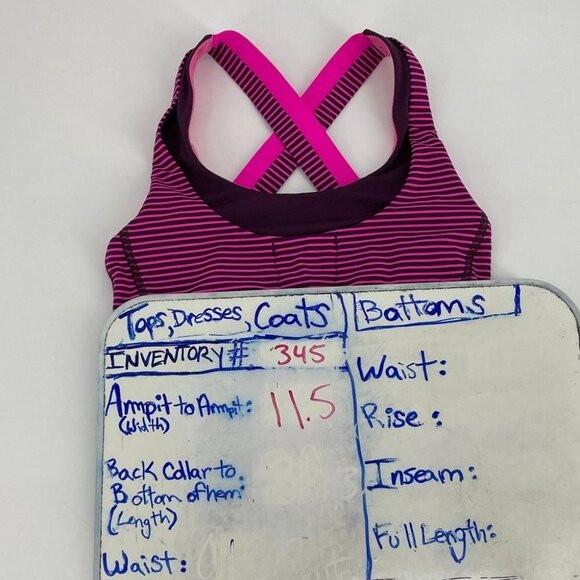 Tops, Dresses, Coats
INVENTORY# 345
Armpit to Armpit: 11.5
(Width)
Back Collar to
Bottom of hem:
(Length)
Waist:
Bottoms
Waist:
Rise:
Inseam:
Full Length: